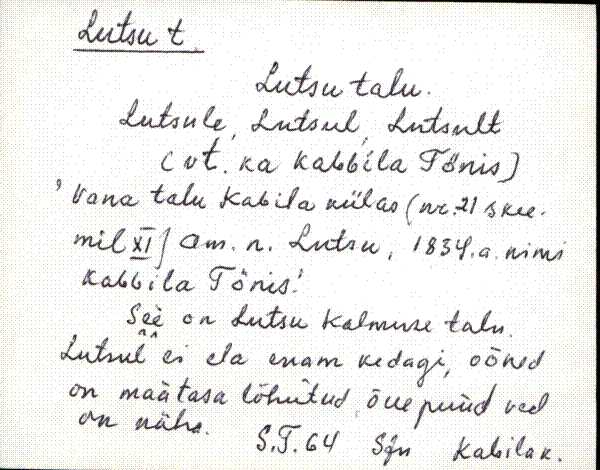 Lutsu t.
Lutsu talu.
Lutsule, Lutsul, Lutsult
(vt. ka Kabbila Tõnis)
' Vana talu Kabila külas (nr. 21 skee-
mil XI) am. n. Lutsu, 1834. a. nimi
Kabbila Tõnis!
See on Lutsu Kalmuse talu.
Lutsul ei ela enam kedagi, ooned
on maatasa lõhutud, õue puud veel
on näha.
S.T. 64 Sjn Kabila k.